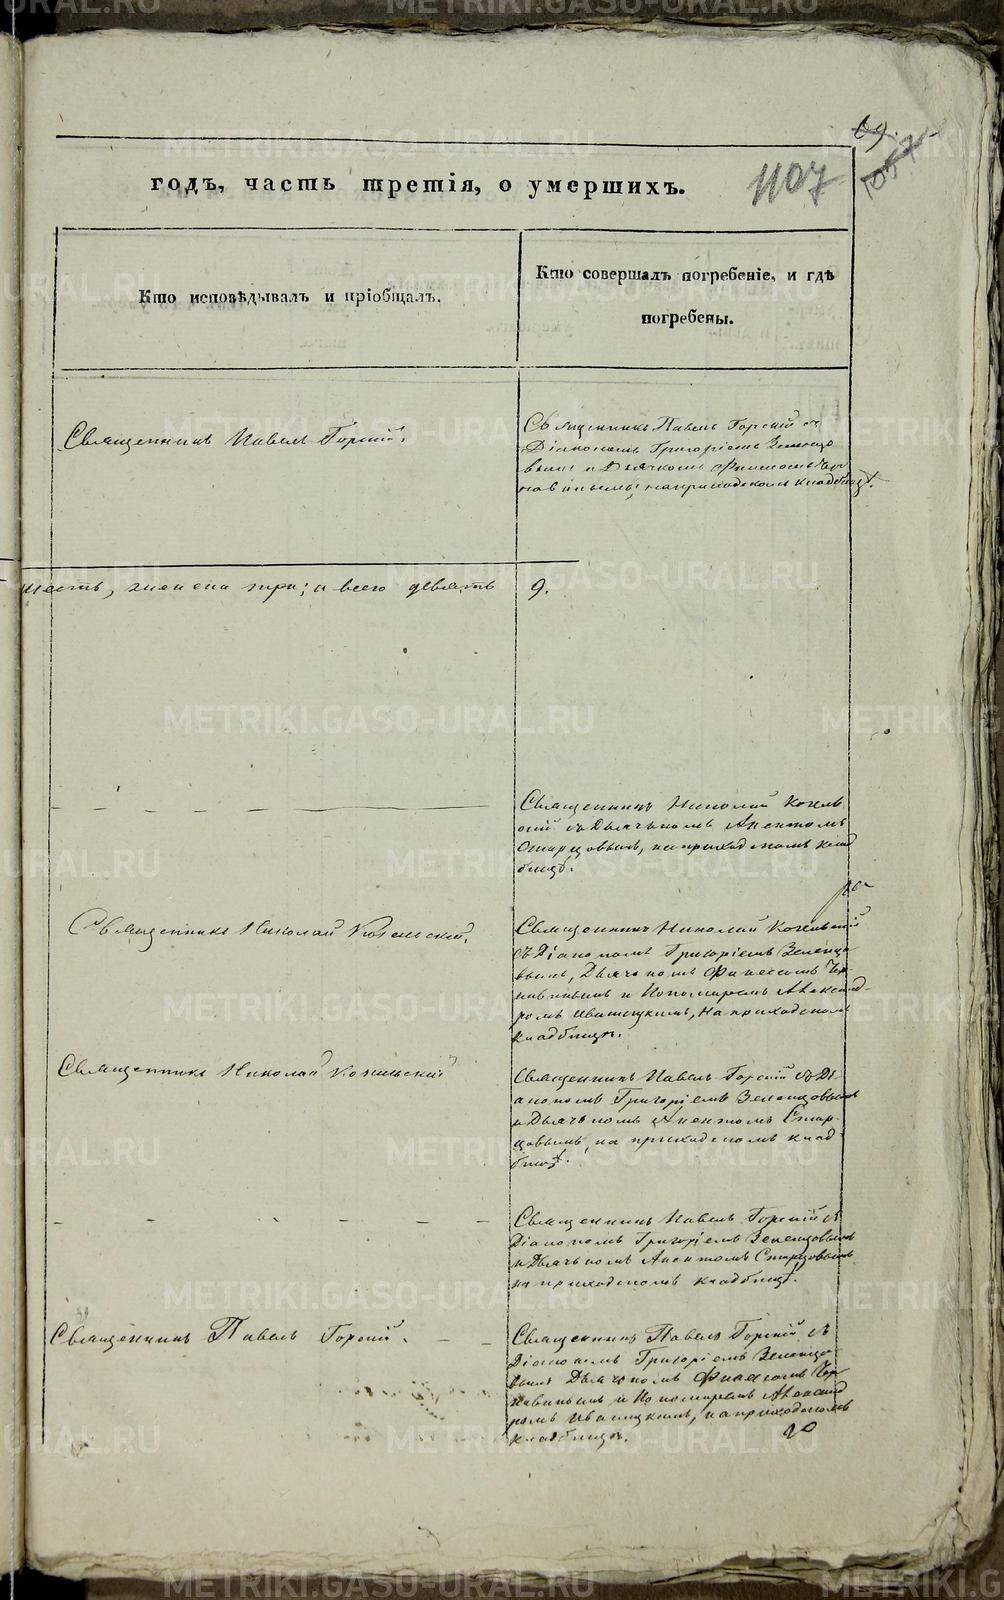 69.
1107
годъ, часть третія, о умершихъ.
Кто исповѣдывалъ и пріобщалъ.
Кто совершалъ погребеніе, и гдѣ
погребены.
Священникъ Павелъ Горскій.
Священникъ Павелъ Горскій съ
Діакономъ Григоріемъ Зеленцо
вымъ и Дьячкомъ
на приходскомъ кладбищѣ.
шесть, женска три; а всего девять
9.
Священникъ Николай Козель
скій съ Дьячкомъ
Старцовымъ, на приходскомъ клад
бищѣ.
Священникъ Николай Козельскій.
Священникъ Николай Козельскій
съ Діакономъ Григоріемъ Зеленцо
вымъ, Дьячкомъ
и Пономаремъ Александ-
ромъ Ивановскимъ, на приходскомъ
кладбищѣ.
Священникъ Николай Козельскій
Священникъ Павелъ Горскій съ Ді-
акономъ Григоріемъ Зеленцовымъ
и Дьячкомъ Стар-
цовымъ, на приходскомъ клад-
бищѣ.
Священникъ Павелъ Горскій съ
Діакономъ Григоріемъ Зеленцовымъ
и Дьячкомъ Старцовымъ
на приходскомъ кладбищѣ.
Священникъ Павелъ Горскій.
Священникъ Павелъ Горскій съ
Діакономъ Григоріемъ Зеленцо-
вымъ Дьячкомъ
и Пономаремъ Александ
ромъ на приходскомъ
кладбищѣ.
METRIKI.GASO-URAL.RU